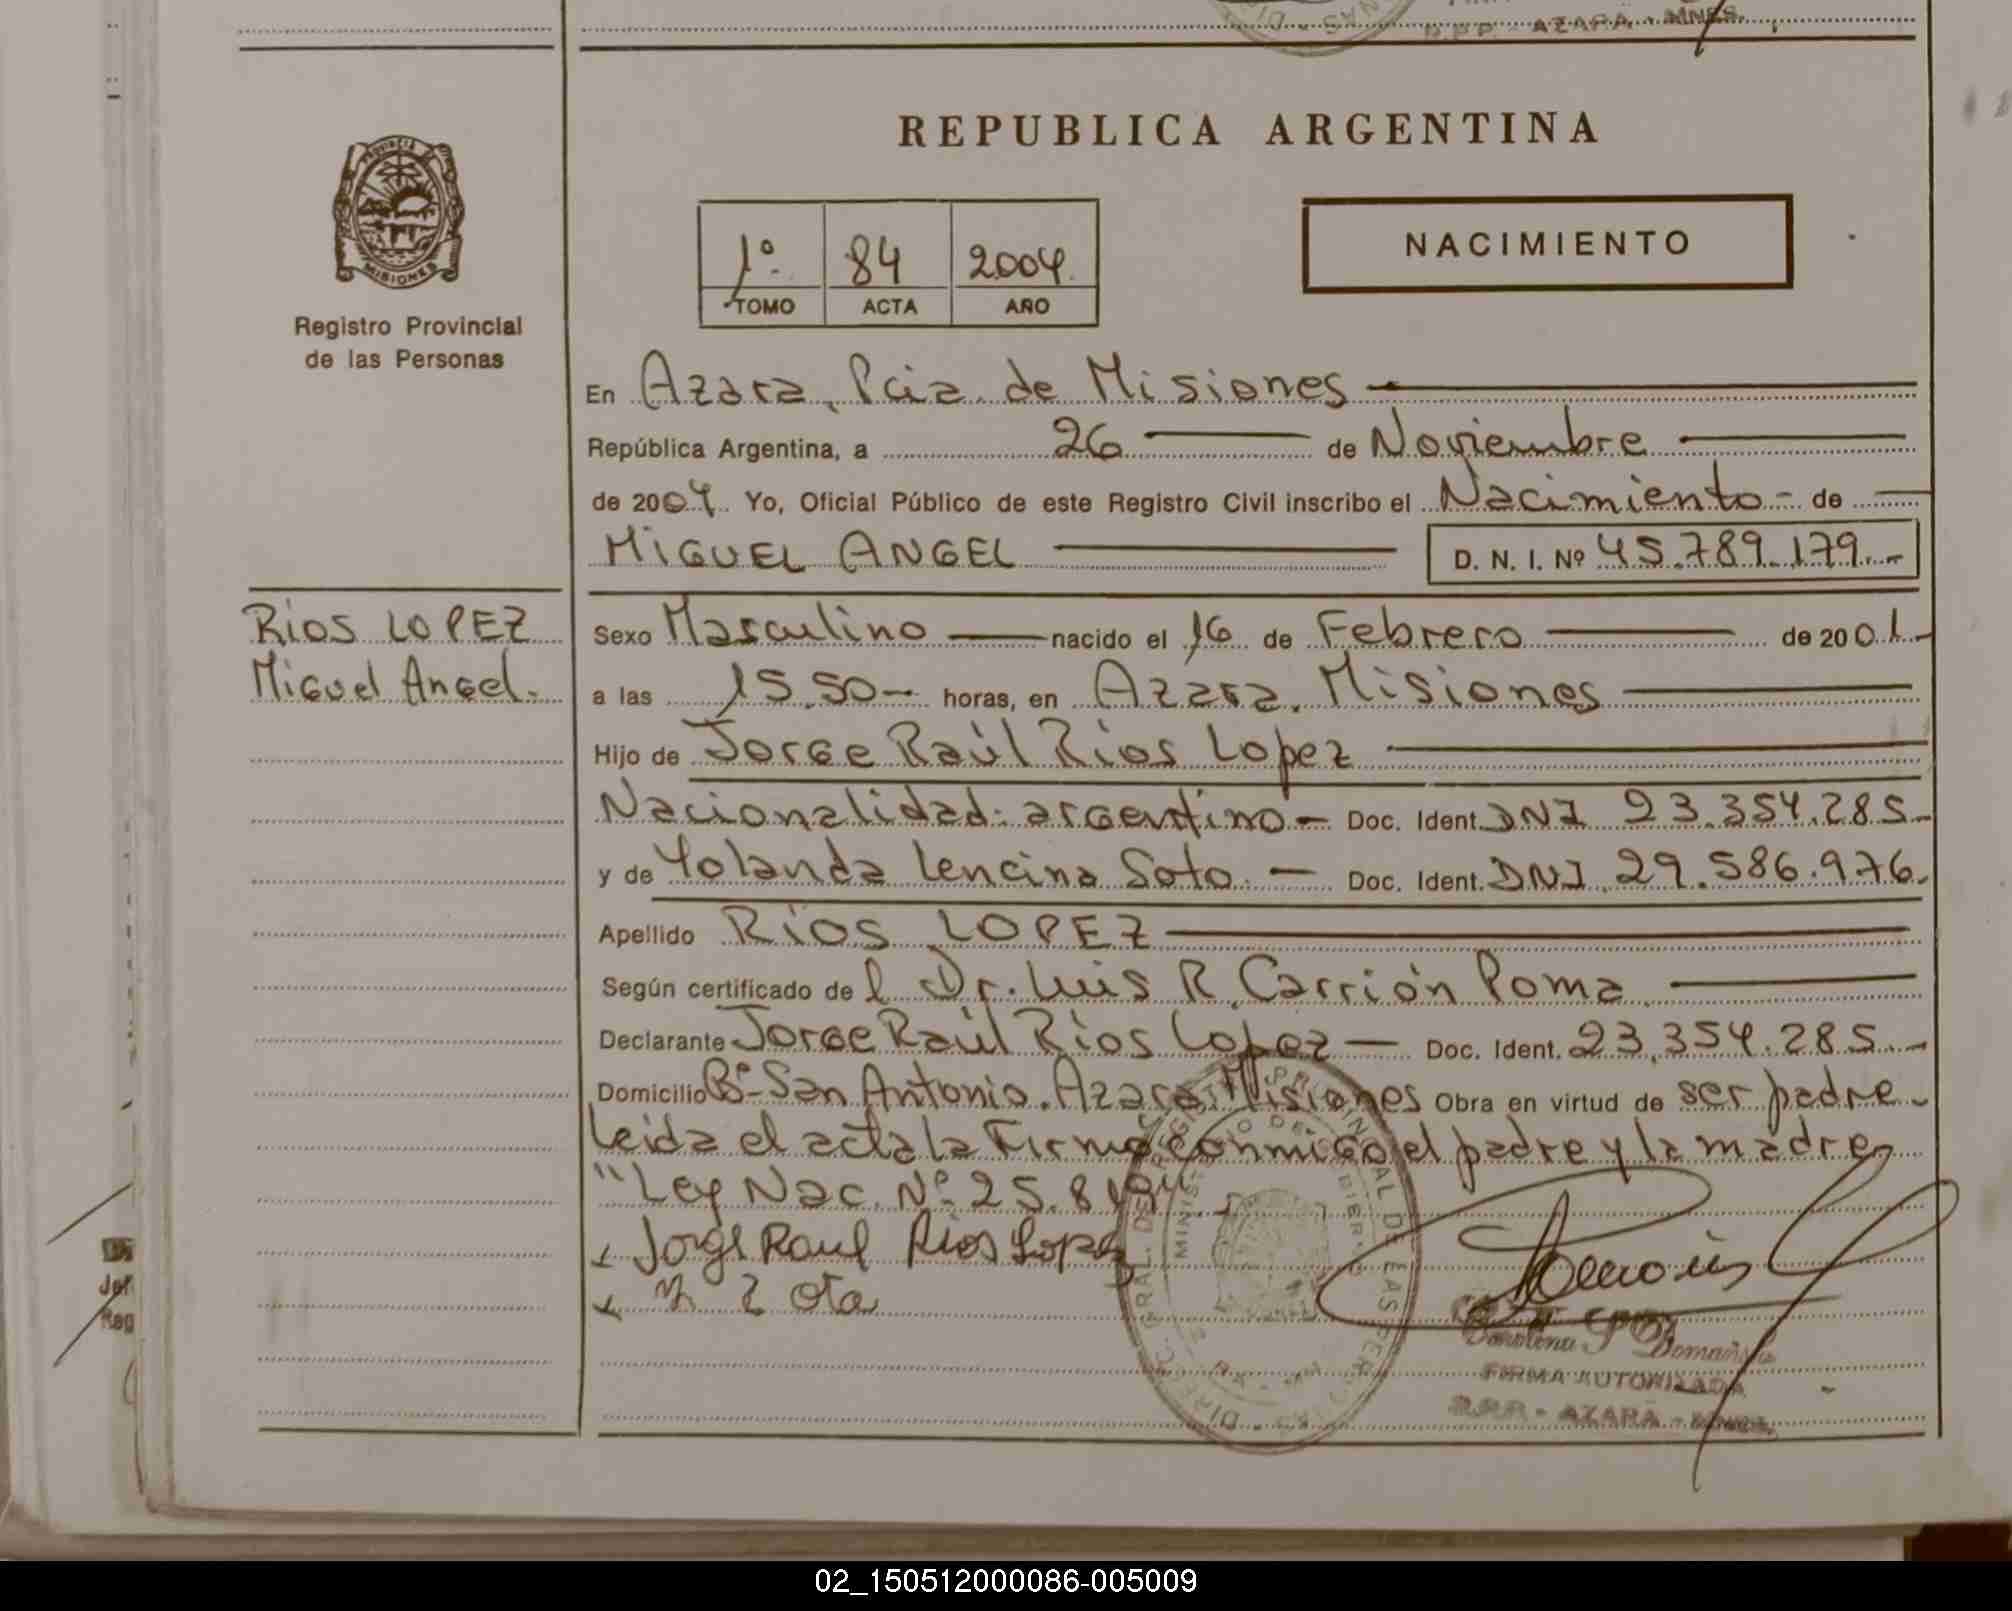 AZARA - MNES.
REPUBLICA ARGENTINA
PROVINCIA DE
MISIONES
Registro Provincial
de las Personas
1º 84 2004
TOMO ACTA AÑO
NACIMIENTO
En Azara, Pcia. de Misiones
República Argentina, a 26 de Noviembre
de 2004. Yo, Oficial Público de este Registro Civil inscribo el Nacimiento - de
MIGUEL ANGEL D. N. I. Nº 45.789.179.-
RIOS LOPEZ
Miguel Angel.
Sexo Masculino nacido el 16 de Febrero de 2001
a las 15.50- horas, en Azara. Misiones
Hijo de Jorge Raúl Rios Lopez
Nacionalidad: argentino - Doc. Ident. DNI 23.354.285.-
y de Yolanda Lencina Soto. - Doc. Ident. DNI 29.586.976.
Apellido RIOS LOPEZ
Según certificado de l Dr. Luis R. Carrión Poma
Declarante Jorge Raúl Rios Lopez - Doc. Ident. 23.354.285.-
Domicilio Bº San Antonio. Azara. Misiones Obra en virtud de ser padre.
Leida el acta la firma conmigo el padre y la madre
"Ley Nac. Nº 25.819"
Jorge Raul Rios Lopez
FIRMA AUTORIZADA
AZARA - MNES.
Jef
Reg
02_150512000086-005009